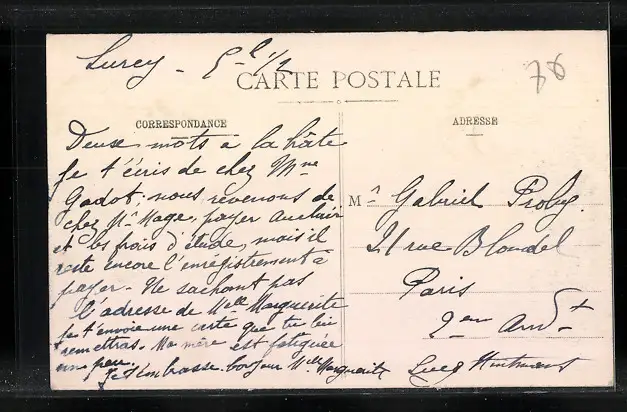 Lurcy - 5 h 1/2
76
CARTE POSTALE
CORRESPONDANCE
ADRESSE
Deux mots à la hâte
Je t'écris de chez Mme
Godot. nous revenons de
chez Mr Mage. payer
et les frais d'étude, mais il
reste encore l'enrégistrement à
payer. Ne sachant pas
l'adresse de Melle Marguerite
je t'envoie une carte que tu lui
remettras. Ma mère est fatiguée
un peu.
Je t'embrasse. bonjour Melle Marguerite
Mr Gabriel
21 rue Blondel
Paris
2em Arrdt